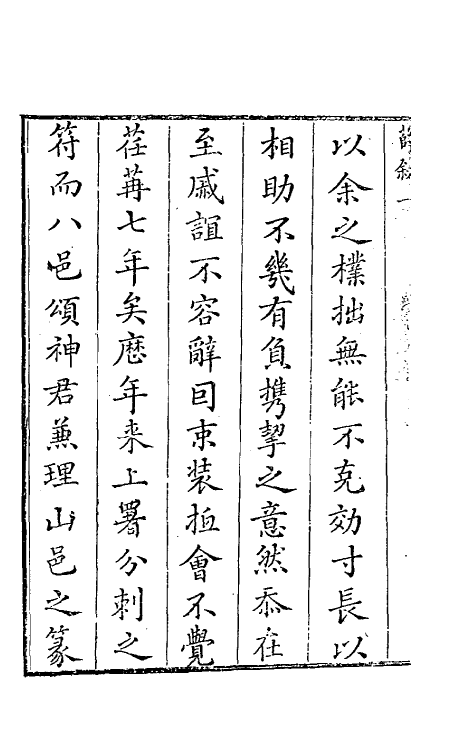 以余之樸拙無能不克効寸長以
相助不幾有負携挈之意然忝在
至戚誼不容辭囙束裝抵會不覺
荏苒七年矣歷年来上署分刺之
符而八邑頌神君兼理山邑之篆